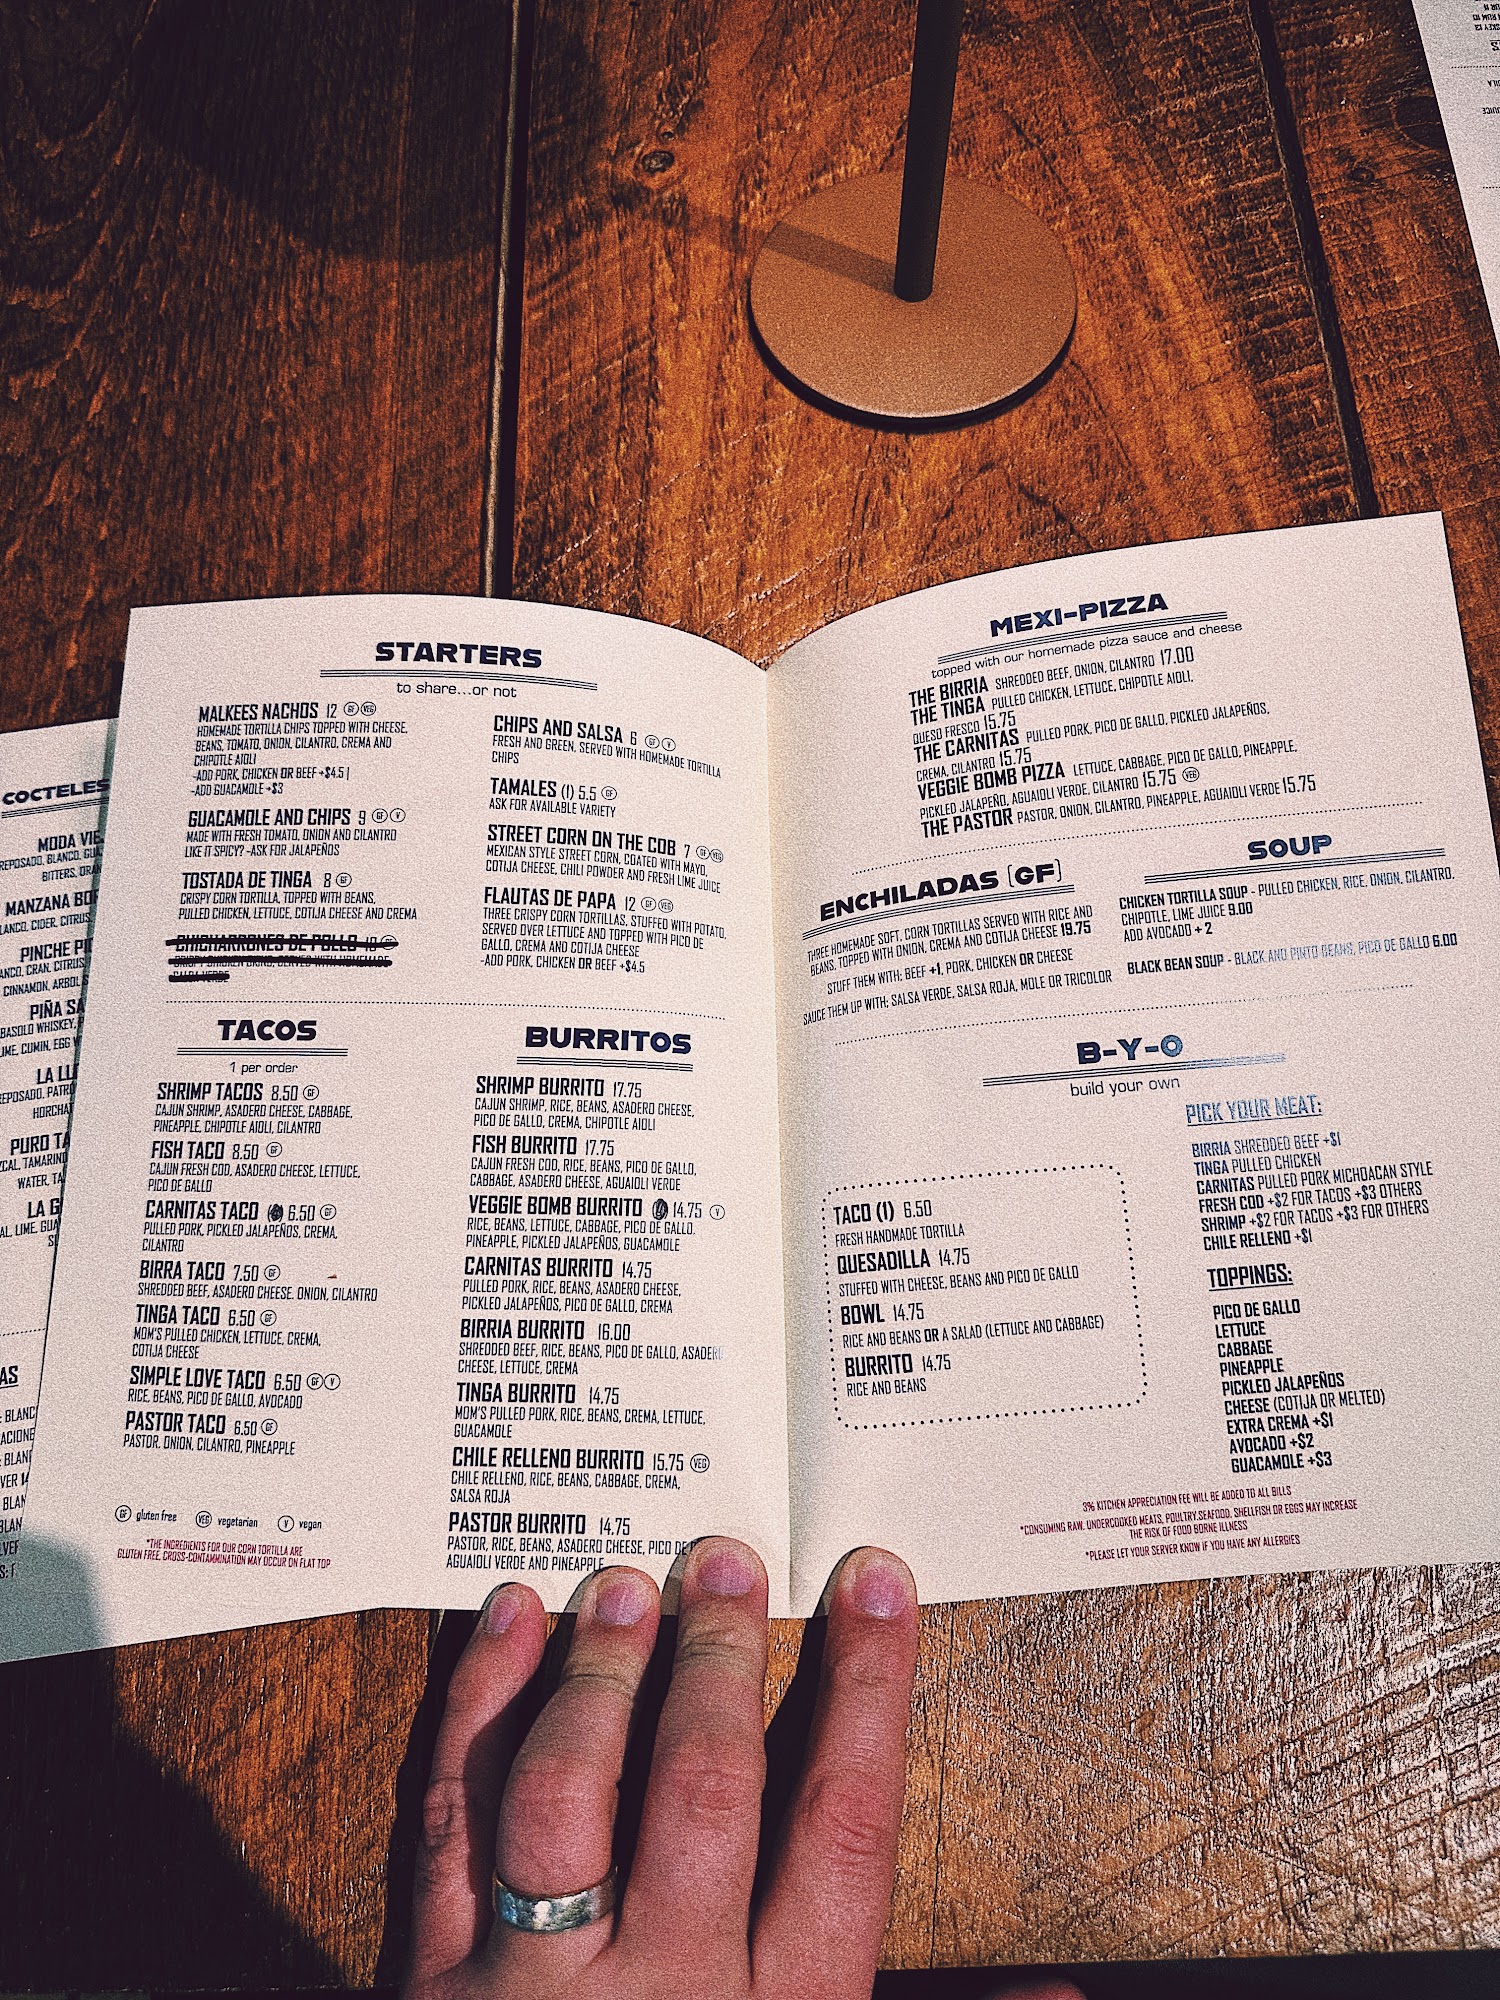 STARTERS
to share...or not
MALKEES NACHOS 12 GF VEG
HOMEMADE TORTILLA CHIPS TOPPED WITH CHEESE,
BEANS, TOMATO, ONION, CILANTRO, CREMA AND
CHIPOTLE AIOLI
-ADD PORK, CHICKEN OR BEEF +$4.5 |
-ADD GUACAMOLE +$3
GUACAMOLE AND CHIPS 9 GF V
MADE WITH FRESH TOMATO, ONION AND CILANTRO
LIKE IT SPICY? -ASK FOR JALAPEÑOS
TOSTADA DE TINGA 8 GF
CRISPY CORN TORTILLA, TOPPED WITH BEANS,
PULLED CHICKEN, LETTUCE, COTIJA CHEESE AND CREMA
CHICHARRONES DE POLLO
CHIPS AND SALSA 6 GF V
FRESH AND GREEN, SERVED WITH HOMEMADE TORTILLA
CHIPS
TAMALES (1) 5.5 GF
ASK FOR AVAILABLE VARIETY
STREET CORN ON THE COB 7 GF VEG
MEXICAN STYLE STREET CORN, COATED WITH MAYO,
COTIJA CHEESE, CHILI POWDER AND FRESH LIME JUICE
FLAUTAS DE PAPA 12 GF VEG
THREE CRISPY CORN TORTILLAS, STUFFED WITH POTATO,
SERVED OVER LETTUCE AND TOPPED WITH PICO DE
GALLO, CREMA AND COTIJA CHEESE
-ADD PORK, CHICKEN OR BEEF +$4.5
TACOS
1 per order
SHRIMP TACOS 8.50 GF
CAJUN SHRIMP, ASADERO CHEESE, CABBAGE,
PINEAPPLE, CHIPOTLE AIOLI, CILANTRO
FISH TACO 8.50 GF
CAJUN FRESH COD, ASADERO CHEESE, LETTUCE,
PICO DE GALLO
CARNITAS TACO 6.50 GF
PULLED PORK, PICKLED JALAPEÑOS, CREMA,
CILANTRO
BIRRA TACO 7.50 GF
SHREDDED BEEF, ASADERO CHEESE. ONION, CILANTRO
TINGA TACO 6.50 GF
MOM'S PULLED CHICKEN, LETTUCE, CREMA,
COTIJA CHEESE
SIMPLE LOVE TACO 6.50 GF V
RICE, BEANS, PICO DE GALLO, AVOCADO
PASTOR TACO 6.50 GF
PASTOR, ONION, CILANTRO, PINEAPPLE
GF gluten free VEG vegetarian V vegan
*THE INGREDIENTS FOR OUR CORN TORTILLA ARE
GLUTEN FREE, CROSS-CONTAMMINATION MAY OCCUR ON FLAT TOP
BURRITOS
SHRIMP BURRITO 17.75
CAJUN SHRIMP, RICE, BEANS, ASADERO CHEESE,
PICO DE GALLO, CREMA, CHIPOTLE AIOLI
FISH BURRITO 17.75
CAJUN FRESH COD, RICE, BEANS, PICO DE GALLO,
CABBAGE, ASADERO CHEESE, AGUAIOLI VERDE
VEGGIE BOMB BURRITO 14.75 V
RICE, BEANS, LETTUCE, CABBAGE, PICO DE GALLO,
PINEAPPLE, PICKLED JALAPEÑOS, GUACAMOLE
CARNITAS BURRITO 14.75
PULLED PORK, RICE, BEANS, ASADERO CHEESE,
PICKLED JALAPEÑOS, PICO DE GALLO, CREMA
BIRRIA BURRITO 16.00
SHREDDED BEEF, RICE, BEANS, PICO DE GALLO, ASADERO
CHEESE, LETTUCE, CREMA
TINGA BURRITO 14.75
MOM'S PULLED PORK, RICE, BEANS, CREMA, LETTUCE,
GUACAMOLE
CHILE RELLENO BURRITO 15.75 VEG
CHILE RELLENO, RICE, BEANS, CABBAGE, CREMA,
SALSA ROJA
PASTOR BURRITO 14.75
PASTOR, RICE, BEANS, ASADERO CHEESE, PICO DE
AGUAIOLI VERDE AND PINEAPPLE
MEXI-PIZZA
topped with our homemade pizza sauce and cheese
THE BIRRIA SHREDDED BEEF, ONION, CILANTRO 17.00
THE TINGA PULLED CHICKEN, LETTUCE, CHIPOTLE AIOLI,
QUESO FRESCO 15.75
THE CARNITAS PULLED PORK, PICO DE GALLO, PICKLED JALAPEÑOS,
CREMA, CILANTRO 15.75
VEGGIE BOMB PIZZA LETTUCE, CABBAGE, PICO DE GALLO, PINEAPPLE,
PICKLED JALAPEÑO, AGUAIOLI VERDE, CILANTRO 15.75 VEG
THE PASTOR PASTOR, ONION, CILANTRO, PINEAPPLE, AGUAIOLI VERDE 15.75
ENCHILADAS (GF)
THREE HOMEMADE SOFT, CORN TORTILLAS SERVED WITH RICE AND
BEANS, TOPPED WITH ONION, CREMA AND COTIJA CHEESE 19.75
STUFF THEM WITH; BEEF +1, PORK, CHICKEN OR CHEESE
SAUCE THEM UP WITH; SALSA VERDE, SALSA ROJA, MOLE OR TRICOLOR
SOUP
CHICKEN TORTILLA SOUP - PULLED CHICKEN, RICE, ONION, CILANTRO,
CHIPOTLE, LIME JUICE 9.00
ADD AVOCADO + 2
BLACK BEAN SOUP - BLACK AND PINTO BEANS, PICO DE GALLO 6.00
B-Y-O
build your own
TACO (1) 6.50
FRESH HANDMADE TORTILLA
QUESADILLA 14.75
STUFFED WITH CHEESE, BEANS AND PICO DE GALLO
BOWL 14.75
RICE AND BEANS OR A SALAD (LETTUCE AND CABBAGE)
BURRITO 14.75
RICE AND BEANS
PICK YOUR MEAT:
BIRRIA SHREDDED BEEF +$1
TINGA PULLED CHICKEN
CARNITAS PULLED PORK MICHOACAN STYLE
FRESH COD +$2 FOR TACOS +$3 OTHERS
SHRIMP +$2 FOR TACOS +$3 FOR OTHERS
CHILE RELLENO +$1
TOPPINGS:
PICO DE GALLO
LETTUCE
CABBAGE
PINEAPPLE
PICKLED JALAPEÑOS
CHEESE (COTIJA OR MELTED)
EXTRA CREMA +$1
AVOCADO +$2
GUACAMOLE +$3
3% KITCHEN APPRECIATION FEE WILL BE ADDED TO ALL BILLS
*CONSUMING RAW, UNDERCOOKED MEATS, POULTRY,SEAFOOD, SHELLFISH OR EGGS MAY INCREASE
THE RISK OF FOOD BORNE ILLNESS
*PLEASE LET YOUR SERVER KNOW IF YOU HAVE ANY ALLERGIES
COCTELES
MODA VIE
REPOSADO, BLANCO,
BITTERS,
MANZANA
CIDER, CITRUS,
PINCHE
CRAN, CITRUS
CINNAMON, ARBOL
PIÑA
WHISKEY,
CUMIN, EGG
LA
PURO
TAMARIND
WATER,
LA
LIME,